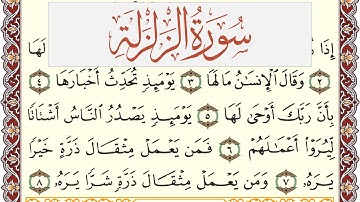 سُورَةُ الزَّلْزَلَةِ
إِذَا
لَهَا
٢ وَقَالَ ٱلْإِنسَٰنُ مَا لَهَا ٣ يَوْمَئِذٍ تُحَدِّثُ أَخْبَارَهَا ٤
بِأَنَّ رَبَّكَ أَوْحَىٰ لَهَا ٥ يَوْمَئِذٍ يَصْدُرُ ٱلنَّاسُ أَشْتَاتًا
لِّيُرَوْا۟ أَعْمَٰلَهُمْ ٦ فَمَن يَعْمَلْ مِثْقَالَ ذَرَّةٍ خَيْرًا
يَرَهُۥ ٧ وَمَن يَعْمَلْ مِثْقَالَ ذَرَّةٍ شَرًّا يَرَهُۥ ٨